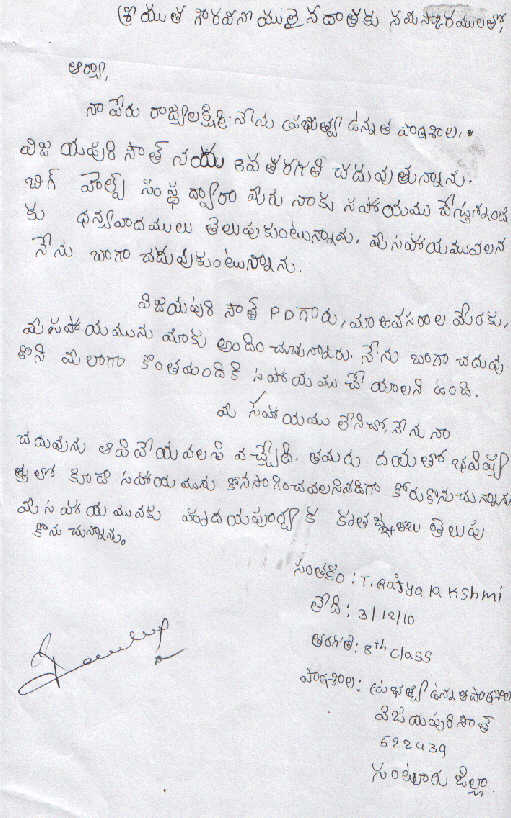 శ్రీయుత గౌరవనీయులైన దాతకు నమస్కారములతో,
ఆర్యా,
నా పేరు రాజ్యలక్ష్మి. నేను ప్రభుత్వ ఉన్నత పాఠశాల,
విజయపురి సౌత్ నయు 8వ తరగతి చదువుతున్నాను.
బిగ్ హెల్ప్ సంస్థ ద్వారా మీరు నాకు సహాయము చేస్తున్నందు
కు ధన్యవాదములు తెలుపుకుంటున్నాను. మీ సహాయమువలన
నేను బాగా చదువుకుంటున్నాను.
విజయపురి సౌత్ PD గారు, మా అవసరాల మేరకు,
మీ సహాయమును మాకు అందించుచున్నారు. నేను బాగా చదువు
కొని మీలాగా కొంతమందికి సహాయము చేయాలని ఉంది.
మీ సహాయము లేనిచో, నేను నా
చదువును ఆపివేయవలసి వచ్చేది. తమరు దయతో భవిష్య
త్తులో కూడా సహాయమును కొనసాగించవలసినదిగా కోరుకొనుచున్నాను
మీ సహాయమునకు హృదయపూర్వక కృతజ్ఞతలు తెలుపు
కొనుచున్నాను
సంతకం: T. Rajya lakshmi
తేది: 3/12/10
తరగతి: 8th class
పాఠశాల: ప్రభుత్వ ఉన్నత పాఠశాల
విజయపురి సౌత్
522439
గుంటూరు జిల్లా.